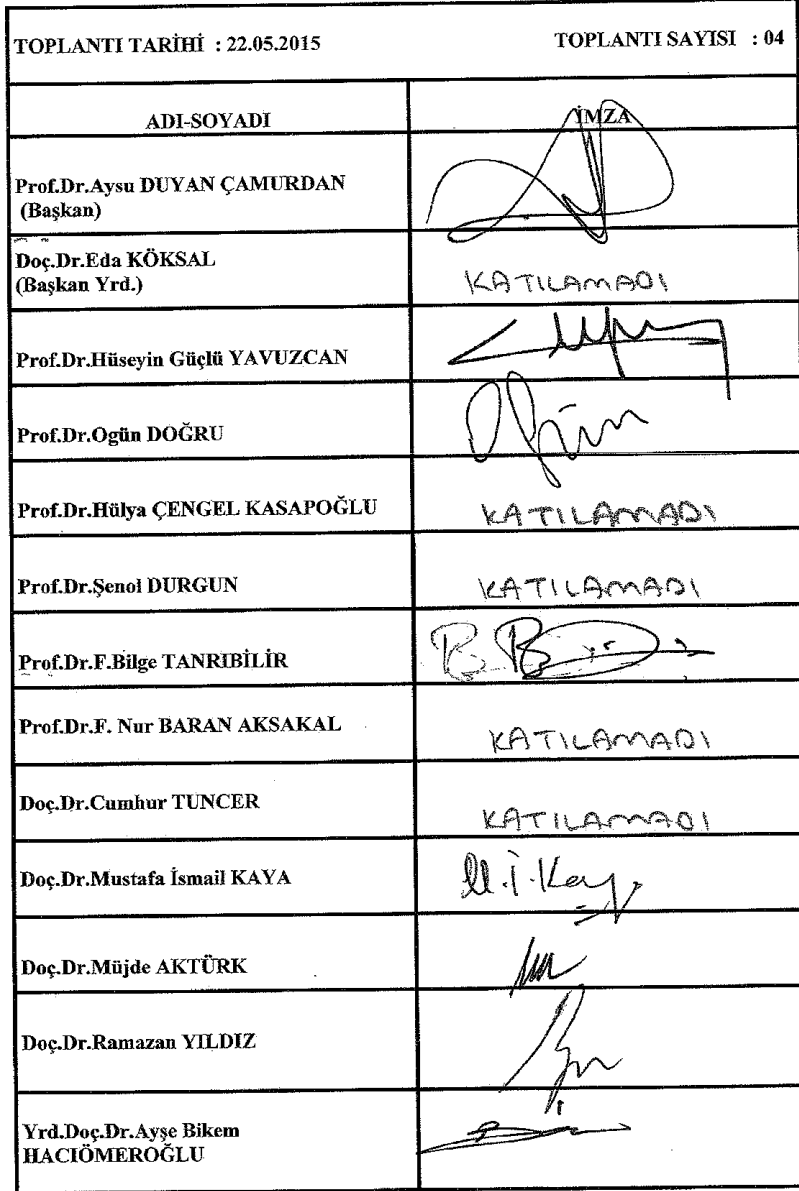 TOPLANTI TARİHİ : 22.05.2015 TOPLANTI SAYISI : 04
ADI-SOYADI İMZA
Prof.Dr.Aysu DUYAN ÇAMURDAN
(Başkan)
Doç.Dr.Eda KÖKSAL
(Başkan Yrd.) KATILAMADI
Prof.Dr.Hüseyin Güçlü YAVUZCAN
Prof.Dr.Ogün DOĞRU
Prof.Dr.Hülya ÇENGEL KASAPOĞLU KATILAMADI
Prof.Dr.Şenol DURGUN KATILAMADI
Prof.Dr.F.Bilge TANRIBİLİR
Prof.Dr.F. Nur BARAN AKSAKAL KATILAMADI
Doç.Dr.Cumhur TUNCER KATILAMADI
Doç.Dr.Mustafa İsmail KAYA M.İ.Kaya
Doç.Dr.Müjde AKTÜRK
Doç.Dr.Ramazan YILDIZ
Yrd.Doç.Dr.Ayşe Bikem
HACIÖMEROĞLU